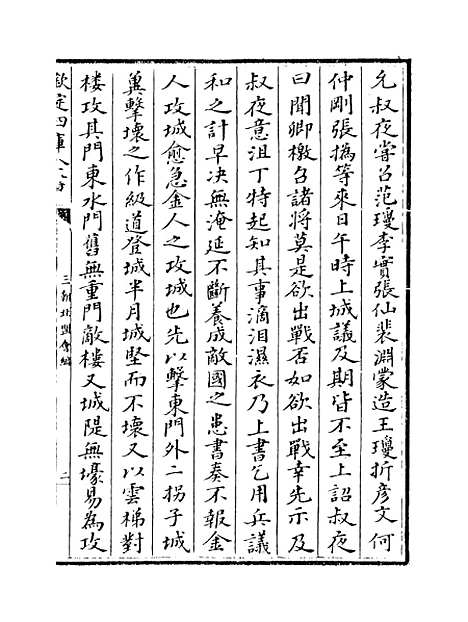 允叔夜嘗召范瓊李實張仙裴淵蒙造王瓊折彦文何
仲剛張撝等來日午時上城議及期皆不至上詔叔夜
曰聞卿檄召諸將莫是欲出戰否如欲出戰幸先示及
叔夜意沮丁特起知其事滴泪濕衣乃上書乞用兵議
和之計早决無淹延不斷養成敵國之患書奏不報金
人攻城愈急金人之攻城也先以擊東門外二拐子城
擊壞之作級道登城半月城堅而不壞又以雲梯對
樓攻其門東水門舊無重門敵樓又城隄無壕易為攻
欽定四庫全書
三朝北盟會編
二